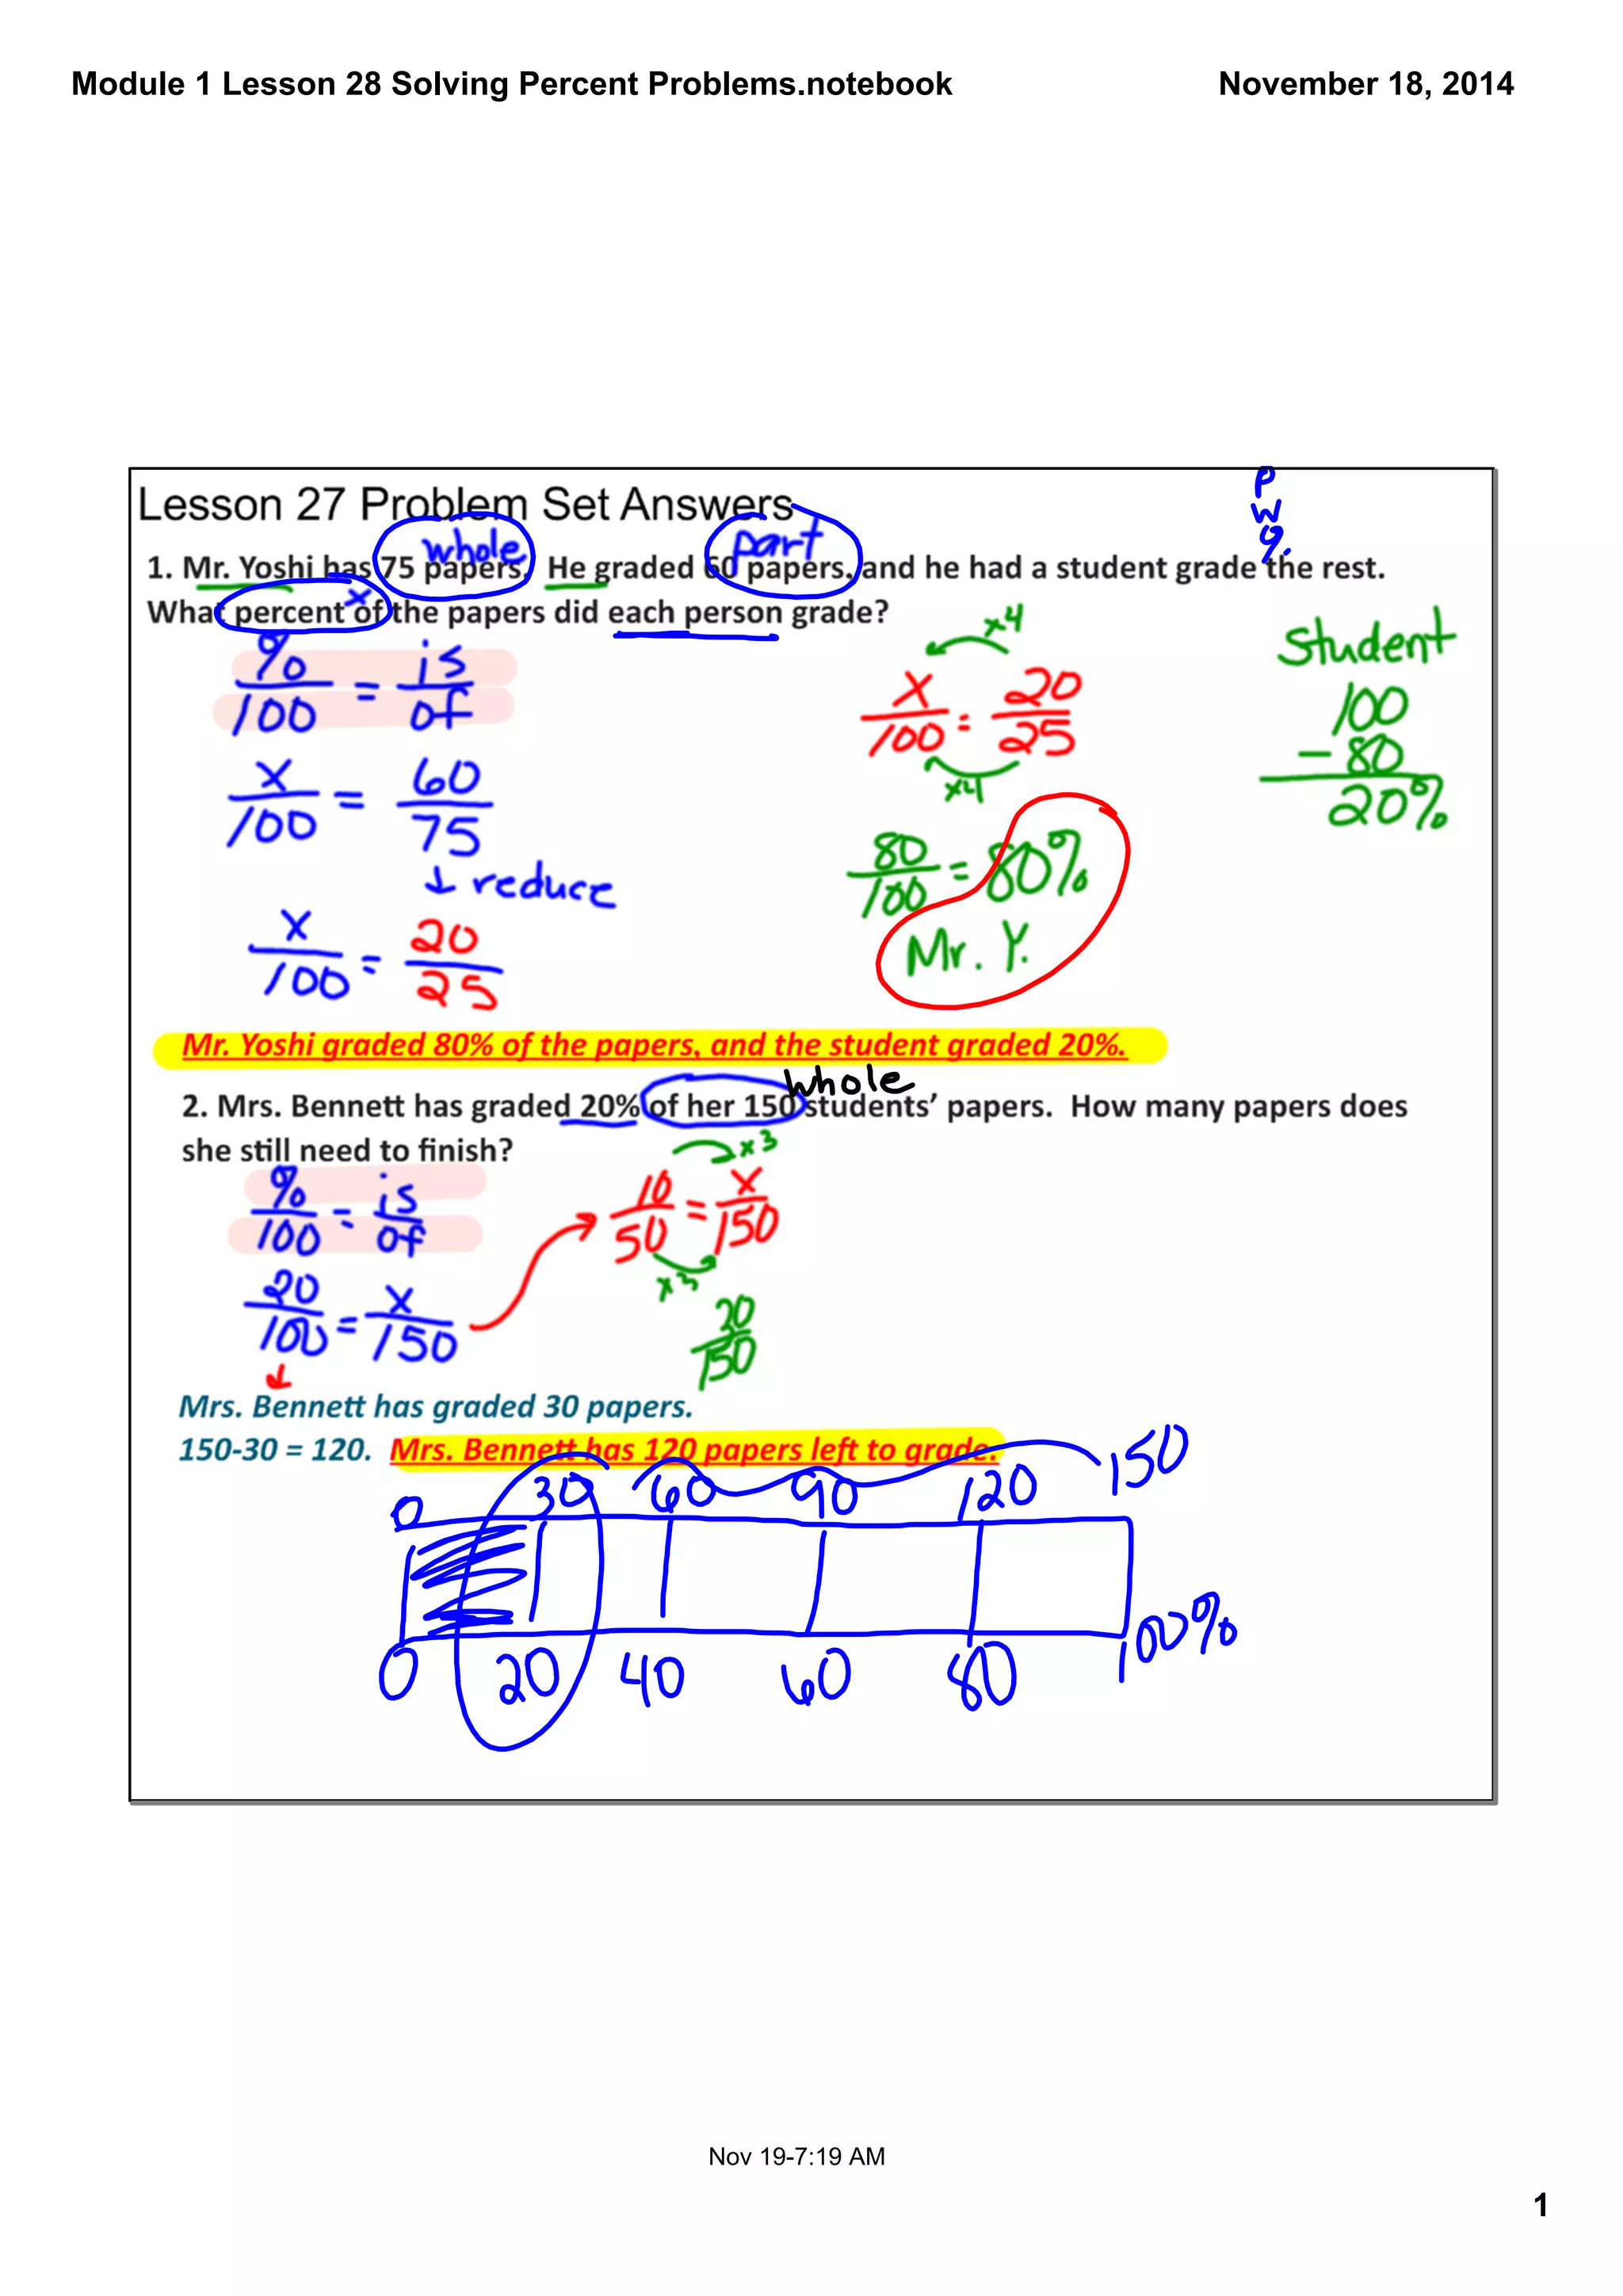 Module 1 Lesson 28 Solving Percent Problems.notebook
November 18, 2014
P
W
%
Lesson 27 Problem Set Answers
whole
part
1. Mr. Yoshi has 75 papers. He graded 60 papers, and he had a student grade the rest.
x
What percent of the papers did each person grade?
%/100 = is/of
x/100 = 60/75
↓ reduce
x/100 = 20/25
x4
x/100 = 20/25
x4
80/100 = 80%
Mr. Y.
Student
100
- 80
20%
Mr. Yoshi graded 80% of the papers, and the student graded 20%.
whole
2. Mrs. Bennett has graded 20% of her 150 students’ papers. How many papers does
she still need to finish?
%/100 = is/of
20/100 = x/150
x3
10/50 = x/150
x3
30/150
Mrs. Bennett has graded 30 papers.
150-30 = 120. Mrs. Bennett has 120 papers left to grade.
0 30 60 90 120 150
0 20 40 60 80 100%
Nov 19-7:19 AM
1